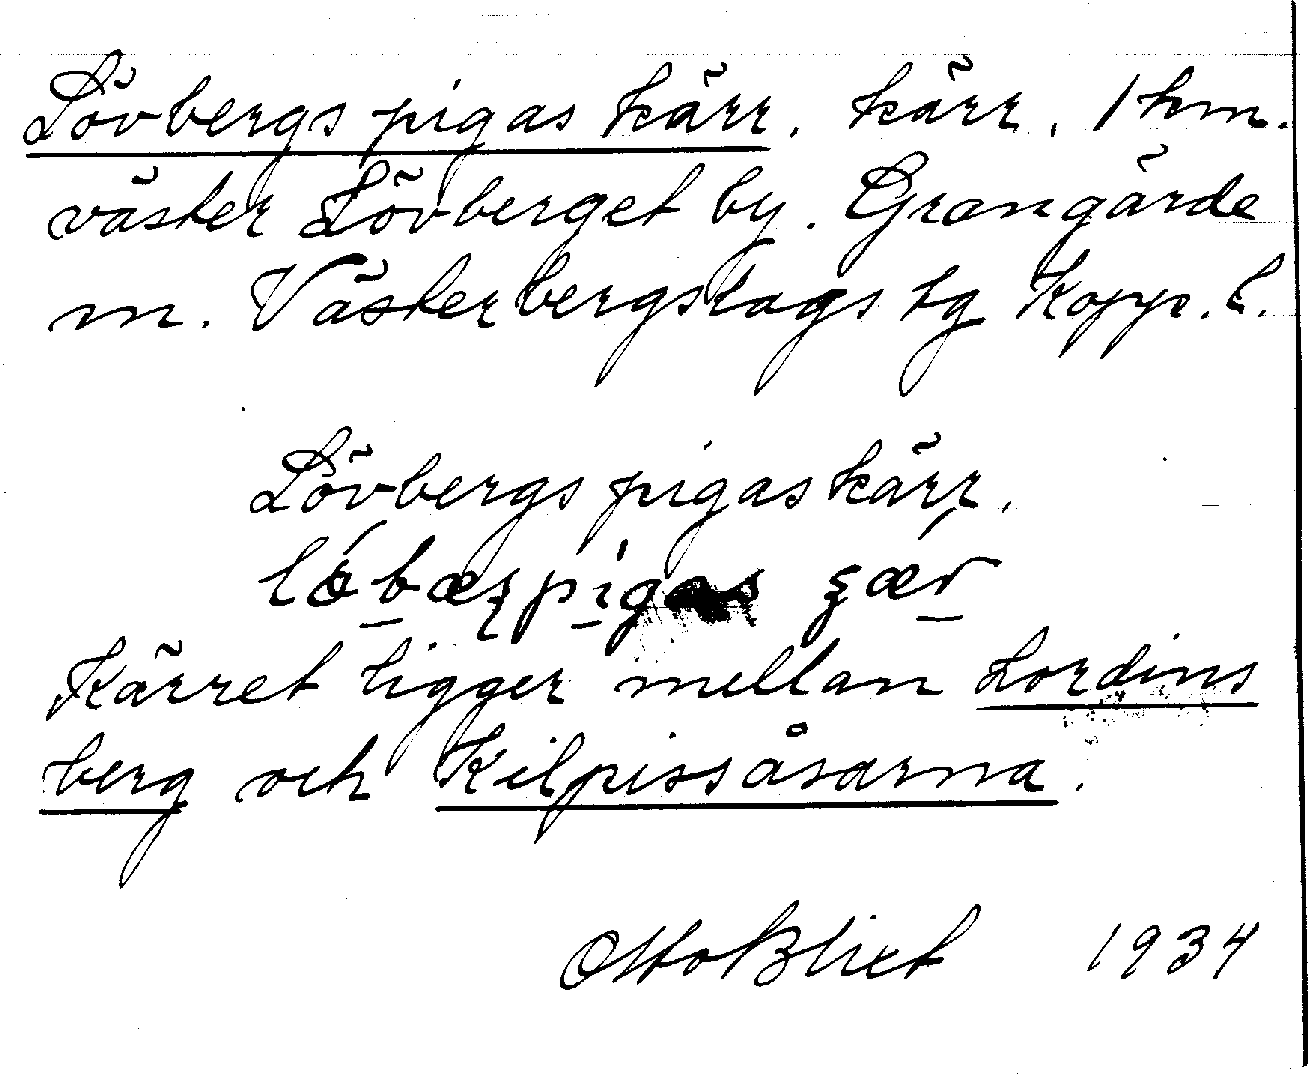 Lövbergs pigas kärr. kärr. 1 km.
väster Lövberget by. Grangärde
m. Västerbergslags tg Kopp. l.
Lövbergs pigas kärr.
Kärret ligger mellan Lordins
berg och Kilpissåsarna.
Otto Blixt 1934